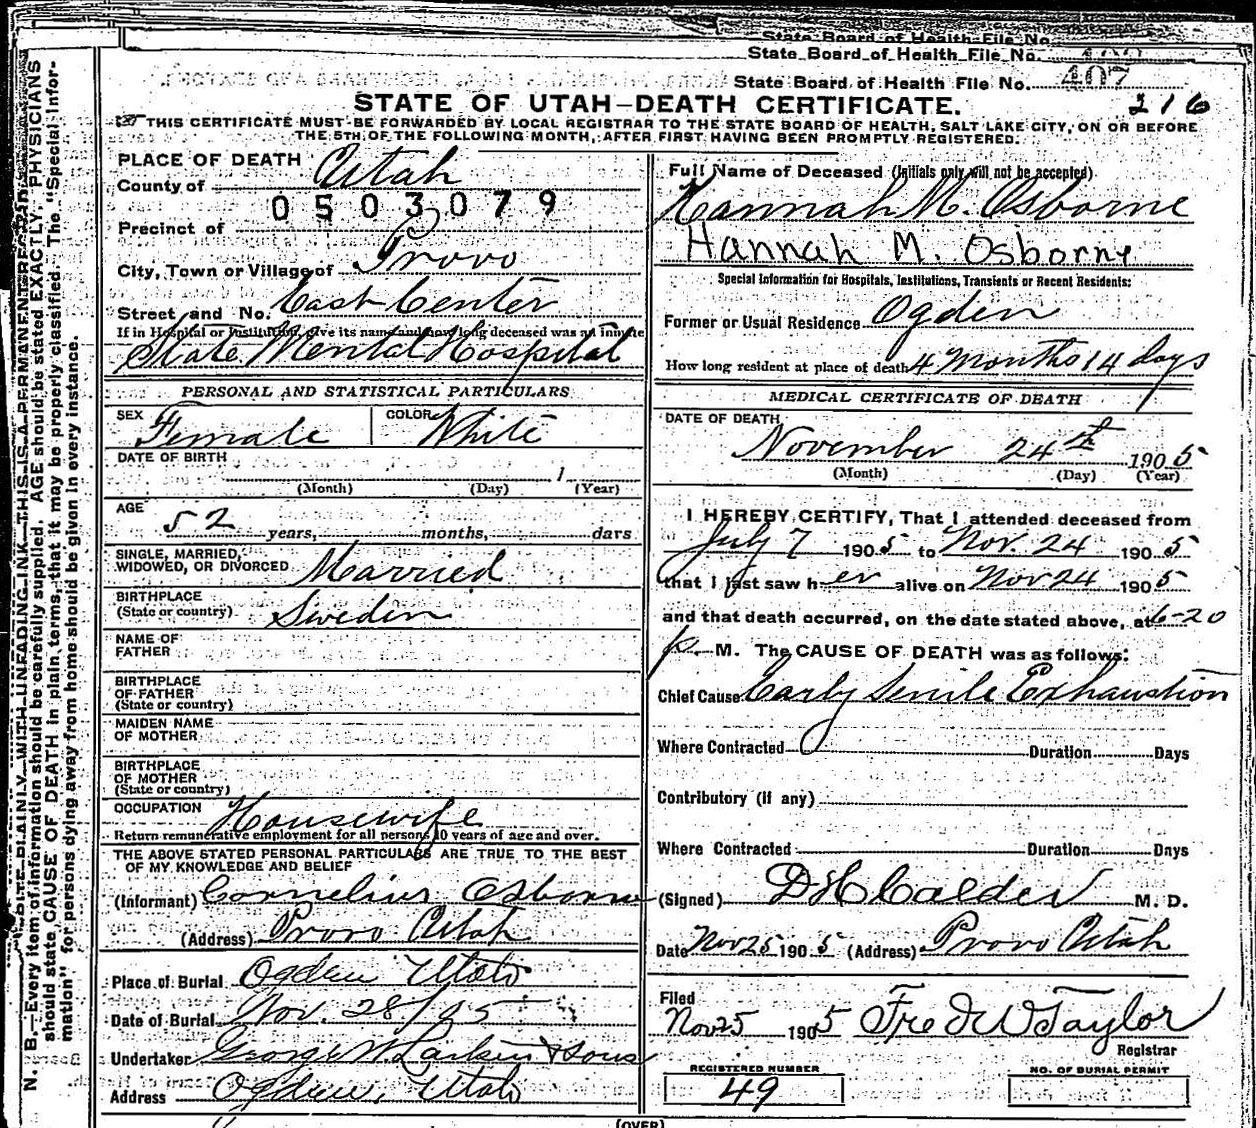 State Board of Health File No.
State Board of Health File No.
State Board of Health File No. 407
216
STATE OF UTAH—DEATH CERTIFICATE.
THIS CERTIFICATE MUST BE FORWARDED BY LOCAL REGISTRAR TO THE STATE BOARD OF HEALTH, SALT LAKE CITY, ON OR BEFORE
THE 5TH OF THE FOLLOWING MONTH, AFTER FIRST HAVING BEEN PROMPTLY REGISTERED.
N. B.—Every item of information should be carefully supplied. AGE should be stated EXACTLY. PHYSICIANS
should state CAUSE OF DEATH in plain terms, that it may be properly classified. The "Special Infor-
mation" for persons dying away from home should be given in every instance.
WRITE PLAINLY WITH UNFADING INK—THIS IS A PERMANENT RECORD
PLACE OF DEATH
County of Utah
0503079
Precinct of
City, Town or Village of Provo
Street and No. East Center
If in Hospital or Institution, give its name and how long deceased was an inmate
State Mental Hospital
PERSONAL AND STATISTICAL PARTICULARS
SEX Female COLOR White
DATE OF BIRTH 1
(Month) (Day) (Year)
AGE
52 years, months, days
SINGLE, MARRIED,
WIDOWED, OR DIVORCED Married
BIRTHPLACE
(State or country) Sweden
NAME OF
FATHER
BIRTHPLACE
OF FATHER
(State or country)
MAIDEN NAME
OF MOTHER
BIRTHPLACE
OF MOTHER
(State or country)
OCCUPATION Housewife
Return remunerative employment for all persons 10 years of age and over.
THE ABOVE STATED PERSONAL PARTICULARS ARE TRUE TO THE BEST
OF MY KNOWLEDGE AND BELIEF
(Informant) Cornelius Osborne
(Address) Provo Utah
Place of Burial Ogden Utah
Date of Burial Nov. 28/05
Undertaker George W. Larkin & Sons
Address Ogden, Utah
Full Name of Deceased (Initials only will not be accepted)
Hannah M. Osborne
Hannah M. Osborne
Special Information for Hospitals, Institutions, Transients or Recent Residents:
Former or Usual Residence Ogden
How long resident at place of death 4 Months 14 days
MEDICAL CERTIFICATE OF DEATH
DATE OF DEATH
November 24th 1905
(Month) (Day) (Year)
I HEREBY CERTIFY, That I attended deceased from
July 7 1905 to Nov. 24 1905
that I last saw her alive on Nov 24 1905
and that death occurred, on the date stated above, at 6-20
p. M. The CAUSE OF DEATH was as follows:
Chief Cause Early Senile Exhaustion
Where Contracted Duration Days
Contributory (if any)
Where Contracted Duration Days
(Signed) D H Calder M. D.
Date Nov 25 1905 (Address) Provo Utah
Filed
Nov 25 1905 Fred W Taylor
Registrar
REGISTERED NUMBER
49
NO. OF BURIAL PERMIT
(OVER)